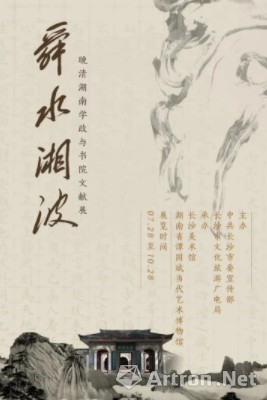 舜水湘波
晚清湖南学政与书院文献展
主办
中共长沙市委宣传部
长沙市文化旅游广电局
承办
长沙美术馆
湖南省谭国斌当代艺术博物馆
展览时间
07.28至10.28
Artron.Net